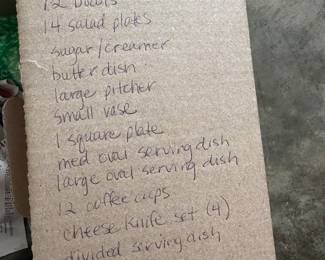 12 bowls
14 salad plates
sugar/creamer
butter dish
large pitcher
small vase
1 square plate
med oval serving dish
large oval serving dish
12 coffee cups
cheese knife set (4)
divided serving dish